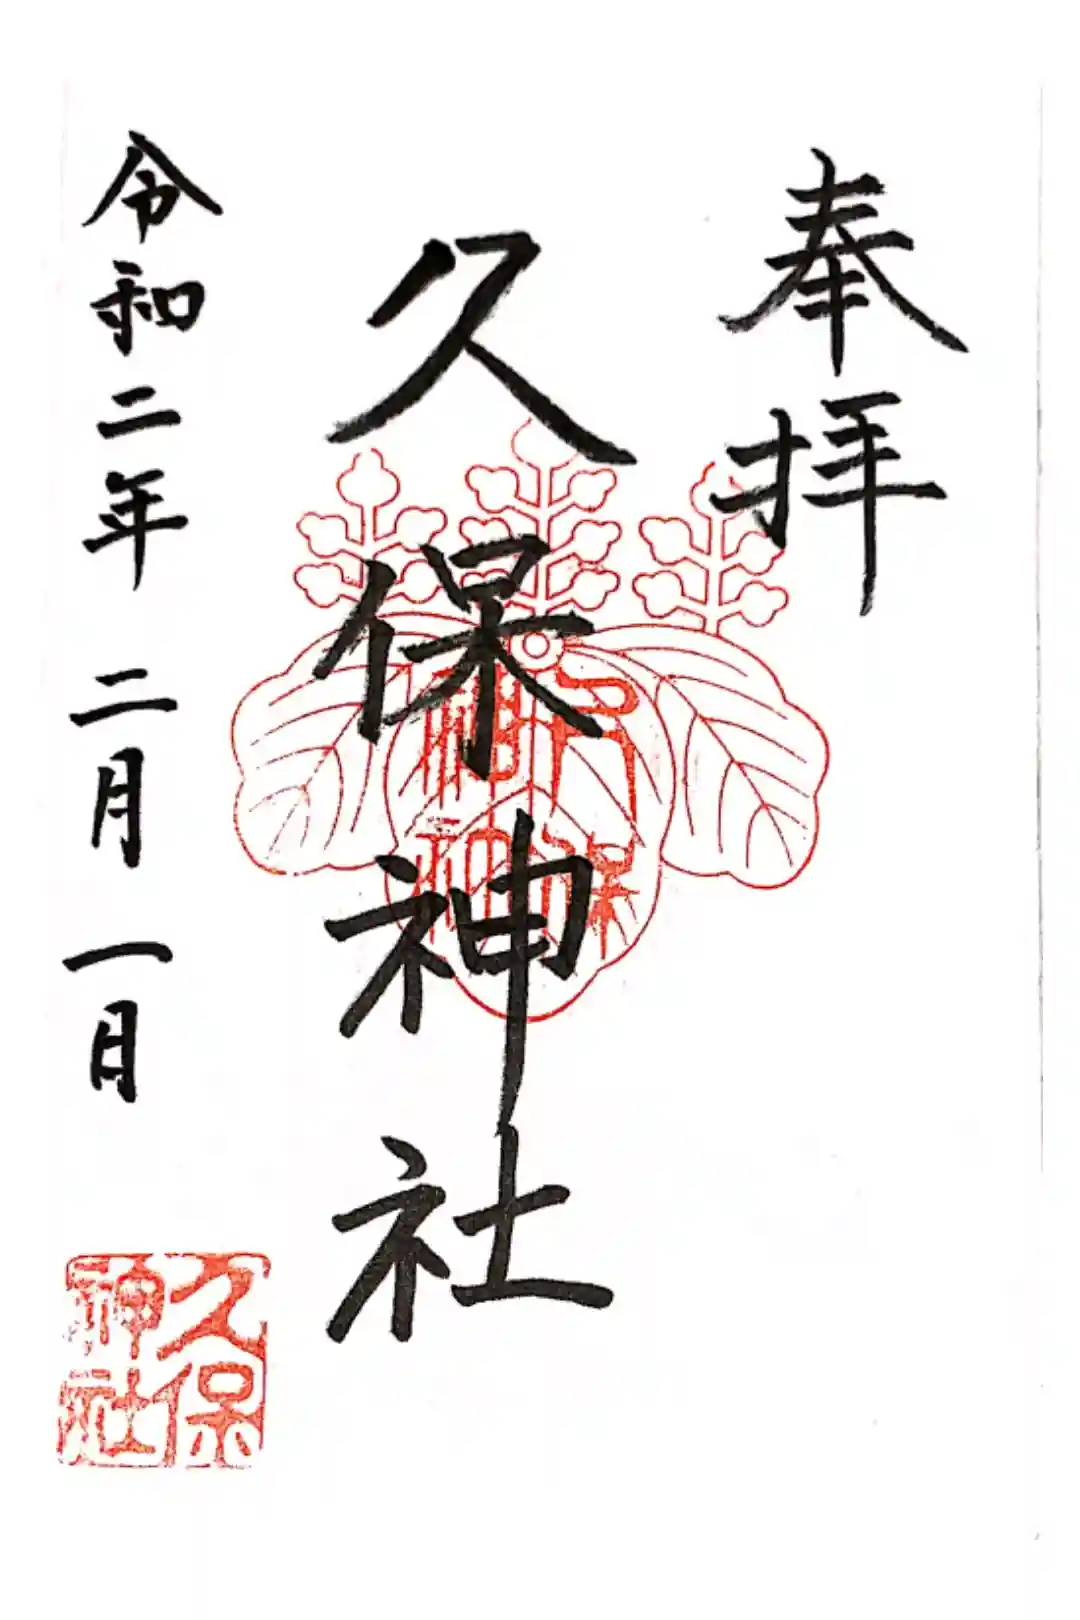 奉拝
久保神社
令和二年 二月 一日
久保
神社